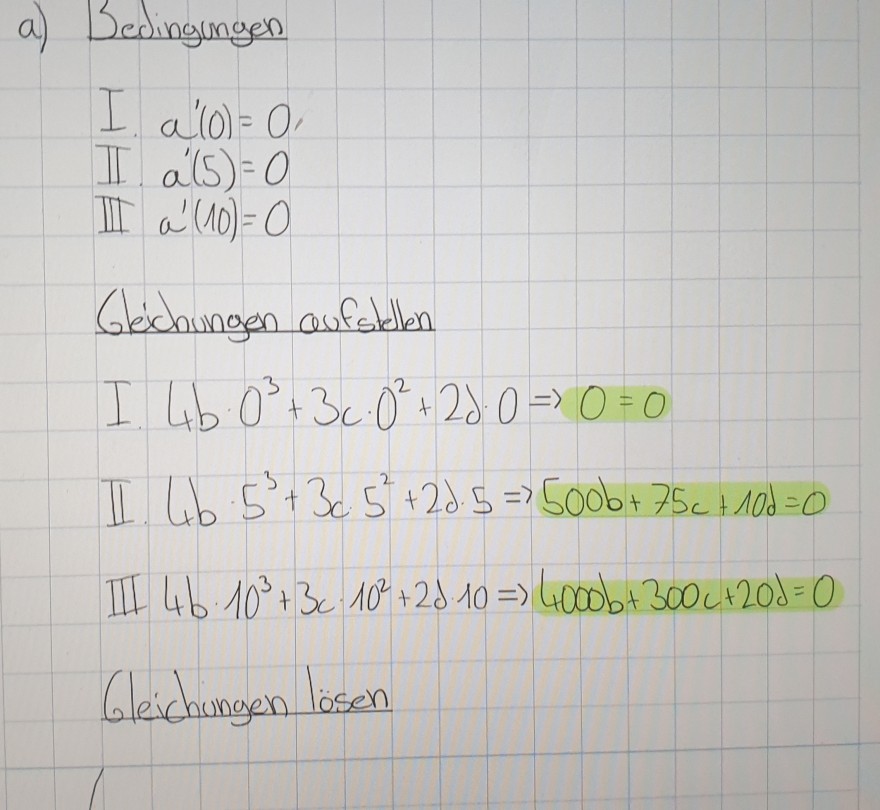 a) Bedingungen
I. a'(0) = 0,
II. a'(5) = 0
III a'(10) = 0
Gleichungen aufstellen
I. 4b · 0³ + 3c · 0² + 2d · 0 => 0 = 0
II. 4b · 5³ + 3c · 5² + 2d · 5 => 500b + 75c + 10d = 0
III 4b · 10³ + 3c · 10² + 2d · 10 => 4000b + 300c + 20d = 0
Gleichungen lösen